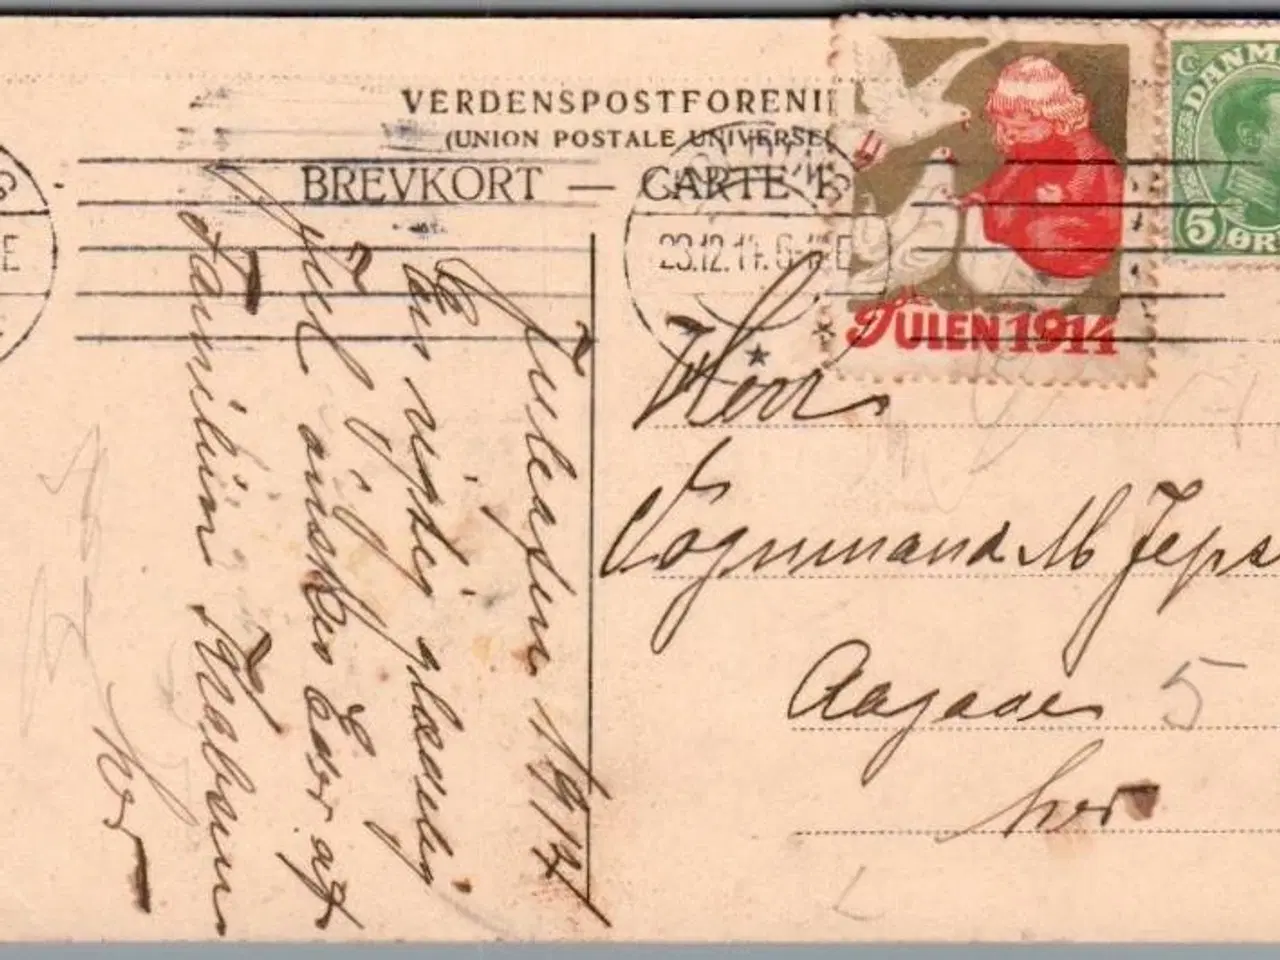 VERDENSPOSTFORENI
(UNION POSTALE UNIVERSE
BREVKORT — CARTE P
23.12.14. 6-
JULEN 1914
DANM
5 ØR
Juleaften 1914
En rigtig glædelig
Jul ønskes Eder af
Familien
Her
Herr
Vognmand M Jeps
Aagade 5
her